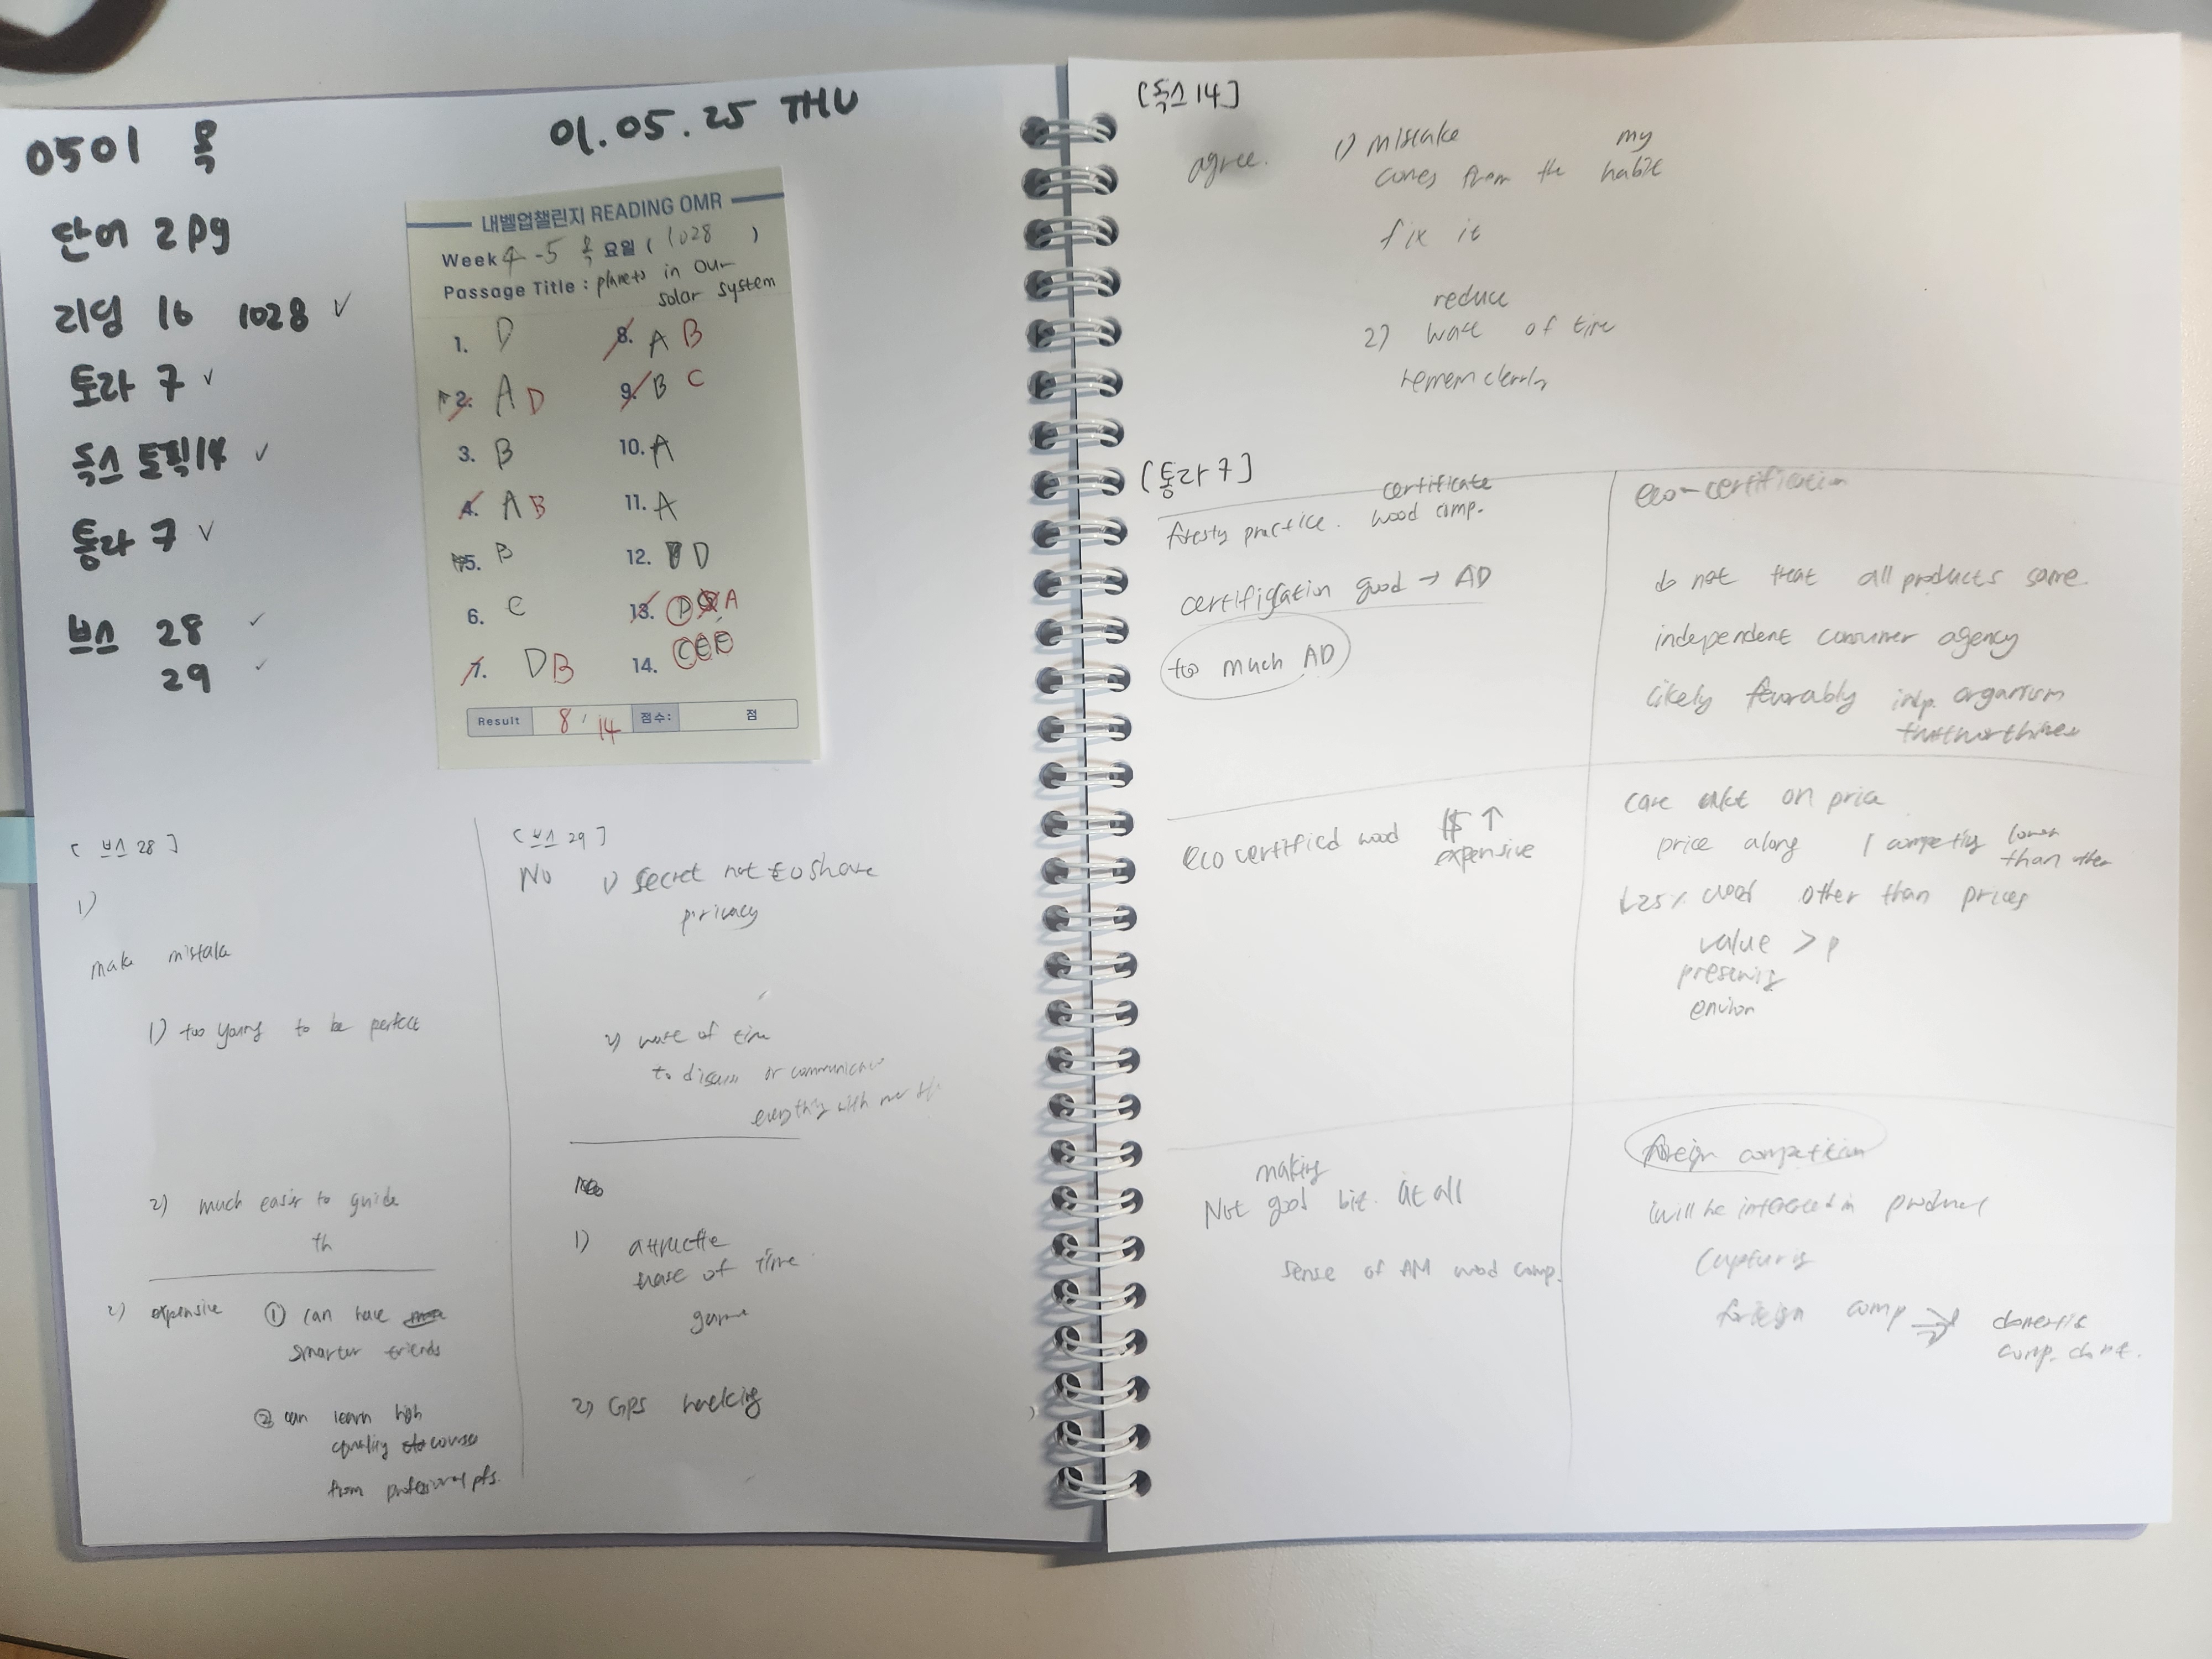 0501 목
01.05.25 THU
단어 2pg
리딩 16 1028 ✓
토라 7 ✓
독스 토픽14 ✓
통라 7 ✓
브스 28 ✓
29 ✓
내벨업챌린지 READING OMR
Week 4-5 목 요일 ( 1028 )
Passage Title : planets in our
solar system
1. D
2. A D
3. B
4. A B
5. B
6. C
7. D B
8. A B
9. B C
10. A
11. A
12. D
13. D A
14.
Result 8/14 점수: 점
[ 브스 28 ]
1)
make mistake
1) too young to be perfect
2) much easier to guide
th
2) expensive ① can have
smarter friends
② can learn high
quality course
from professional pfs.
[ 브스 29 ]
No 1) secret not to share
piricacy
2) waste of time
to discuss or communicate
everything with
1) attractie
waste of time
game
2) GPS hacking
[독스 14]
agree. 1) mistake my
comes from the habit
fix it
reduce
2) waste of time
remem clearly
[통라 7]
certificate
foresty practice. wood comp.
certification good → AD
too much AD
eco-certification
do not treat all products same.
independent consumer agency
likely favorably indp. organism
trustworthiness
eco certified wood $ ↑
expensive
care on price
price along 1 competing lower
than other
other than prices
value > p
preserving
environ
making
Not good bit. at all
sense of AM wood comp.
foreign competition
will be interested in product
capturing
foreign comp ⇒ domestic
comp.